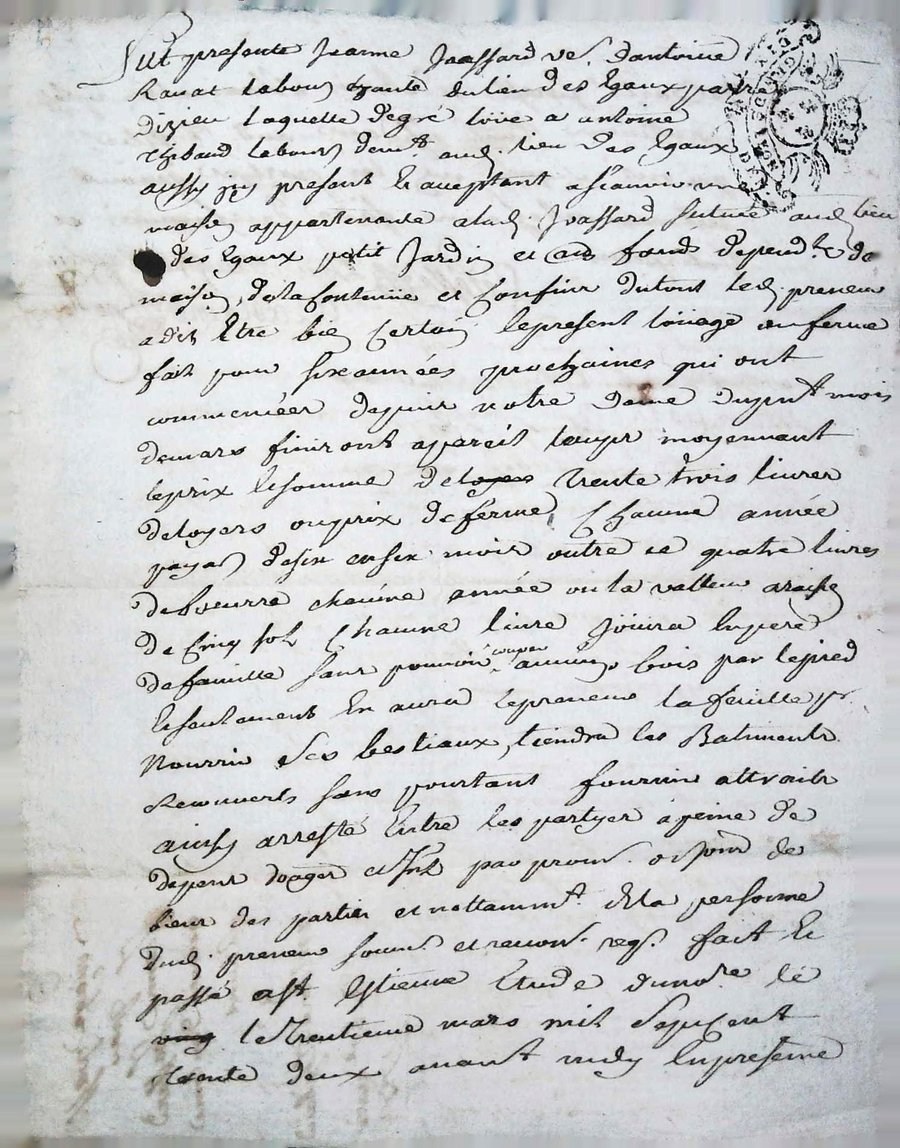 Fut presente Jeanne Joassard ve. d'antoine
Ravat labour du lieu des Egaux
laquelle de gré loue a antoine
Thibaud labour demt. aud. lieu des Egaux
aussy jcy present et acceptant ascauoir une
maison appartenante alad. Joassard scituée aud lieu
des Egaux petit Jardin et fonds depend. de
maison, de la Contenüe et Confins dutout led. preneur
adit Etre bien Certain lepresent loüage ou ferme
fait pour six années prochaines qui ont
commencées depuis notre dame du pnt mois
demars finiront apareil temps moyennant
leprix Et somme de loyers trente trois livres
deloyers ouprix de ferme Chacune année
payar de six ensix mois outre ce quatre livres
debeurre chacune année ou la valleur araison
de Cinq sol Chacune livre Jouira Enpere
defamille sans pouvoir couper aucuns bois par lepied
Et seulement En aura lepreneur la feuille pr.
Nourrir Ses bestiaux, tiendra les Batiments
Recouverts sans pourtant fournir attraits
ainsy arresté Entre les partyes apeine de
depens domages et Int par prom. de
biens des parties et nottammt. dela personne
dud. preneur soum. et renon. reqs. fait Et
passé a St. Estienne Etude dunore. le
ving le trentieme mars mil Sept Cent
trente deux avant midy Enpresence